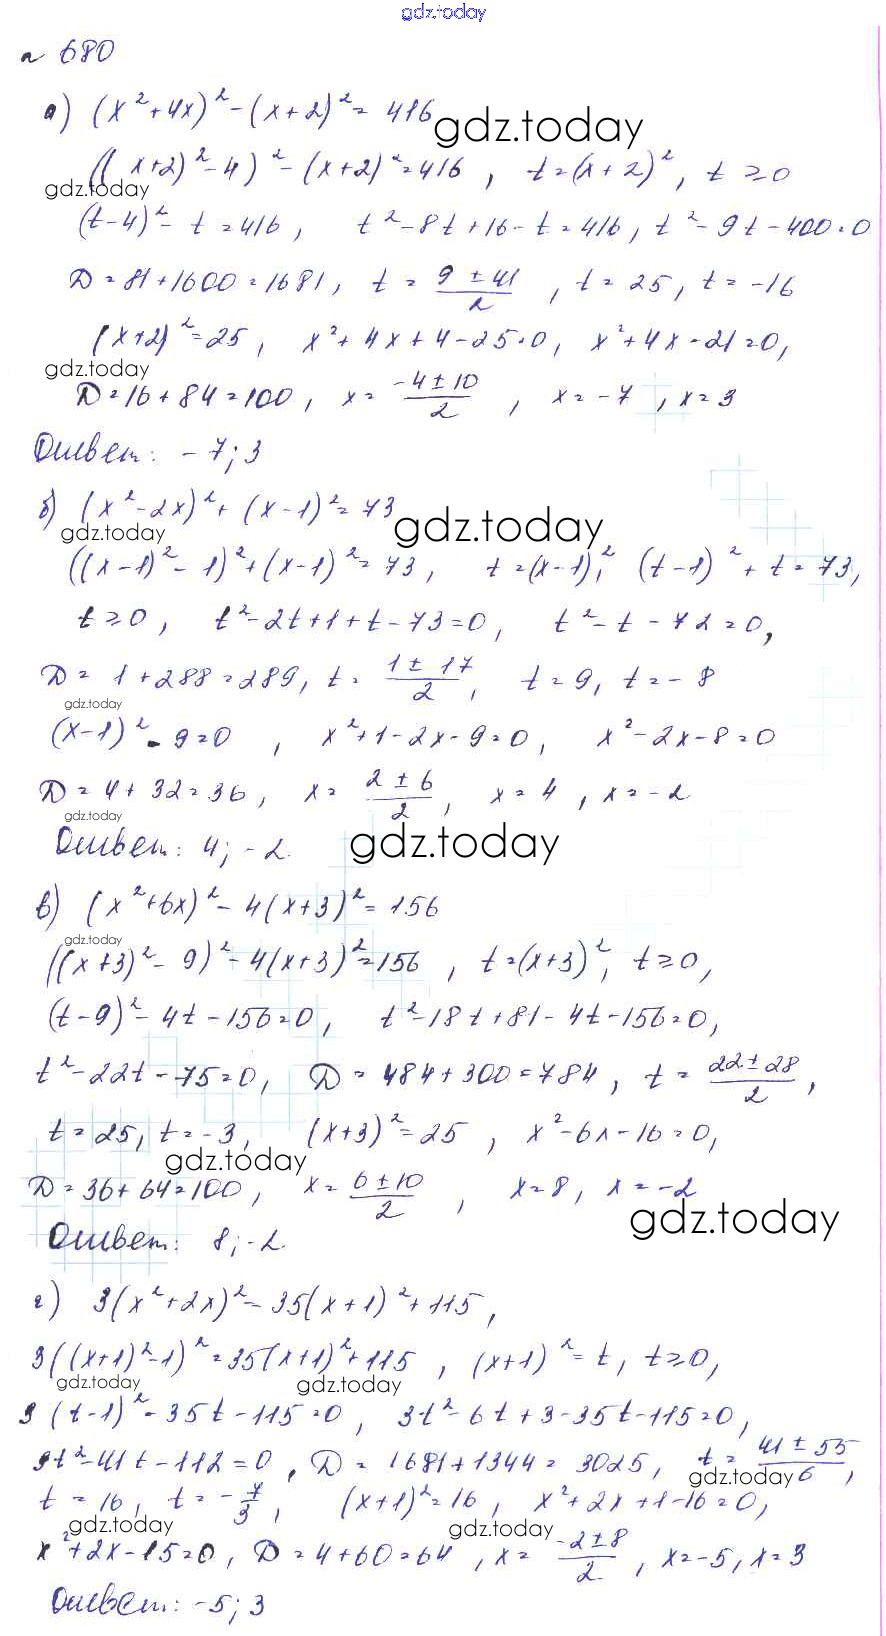 gdz.today
№ 680
а) (x²+4x)²-(x+2)²=416
gdz.today
((x+2)²-4)²-(x+2)²=416, t=(x+2)², t≥0
gdz.today
(t-4)²-t=416, t²-8t+16-t=416, t²-9t-400=0
D=81+1600=1681, t=(9±41)/2, t=25, t=-16
(x+2)²=25, x²+4x+4-25=0, x²+4x-21=0,
gdz.today
D=16+84=100, x=(-4±10)/2, x=-7, x=3
Ответ: -7; 3
б) (x²-2x)²+(x-1)²=73
gdz.today gdz.today
((x-1)²-1)²+(x-1)²=73, t=(x-1)², (t-1)²+t=73,
t≥0, t²-2t+1+t-73=0, t²-t-72=0,
D=1+288=289, t=(1±17)/2, t=9, t=-8
gdz.today
(x-1)²-9=0, x²+1-2x-9=0, x²-2x-8=0
D=4+32=36, x=(2±6)/2, x=4, x=-2
gdz.today
Ответ: 4; -2. gdz.today
в) (x²+6x)²-4(x+3)²=156
gdz.today
((x+3)²-9)²-4(x+3)²=156, t=(x+3)², t≥0,
(t-9)²-4t-156=0, t²-18t+81-4t-156=0,
t²-22t-75=0, D=484+300=784, t=(22±28)/2,
t=25, t=-3, (x+3)²=25, x²-6x-16=0,
gdz.today
D=36+64=100, x=(6±10)/2, x=8, x=-2
gdz.today
Ответ: 8; -2.
г) 3(x²+2x)²=35(x+1)²+115,
3((x+1)²-1)²=35(x+1)²+115, (x+1)²=t, t≥0,
gdz.today gdz.today
3(t-1)²-35t-115=0, 3t²-6t+3-35t-115=0,
3t²-41t-112=0, D=1681+1344=3025, t=(41±55)/6,
gdz.today
t=16, t=-7/3, (x+1)²=16, x²+2x+1-16=0,
gdz.today gdz.today
x²+2x-15=0, D=4+60=64, x=(-2±8)/2, x=-5, x=3
Ответ: -5; 3